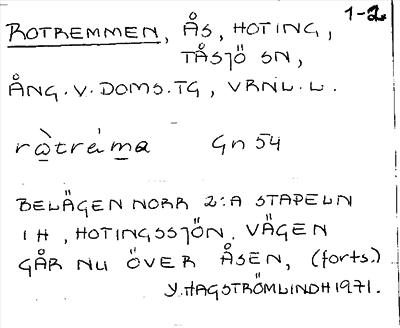 1-2.
ROTREMMEN, ÅS, HOTING,
TÅSJÖ SN,
ÅNG.V.DOMS.TG, VRNL.L.
ròtrém̲a Gn 54
BELÄGEN NORR 2:A STAPELN
I H, HOTINGSSJÖN. VÄGEN
GÅR NU ÖVER ÅSEN, (forts.)
Y.HAGSTRÖMLINDH1971.